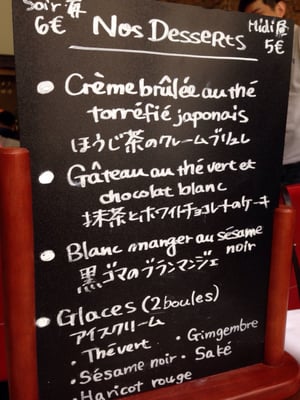 Soir 夜
6€
Nos Desserts
Midi 昼
5€
Crème brûlée au thé
torréfié japonais
ほうじ茶のクレームブリュレ
Gâteau au thé vert et
chocolat blanc
抹茶とホワイトチョコレートのケーキ
Blanc manger au sésame
noir
黒ゴマのブランマンジェ
Glaces (2 boules)
アイスクリーム
・Thé vert
・Gimgembre
・Sésame noir
・Saké
・Haricot rouge